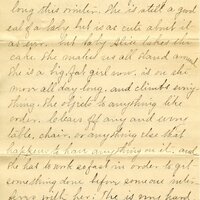 long this winter. She is still a good
eal of a baby but is as cute about it
as ever. but baby Alice takes the
care. She makes us all stand around
She is a big, fat girl now. is on the
move all day long, and climbs every
thing. She objects to anything like
order. Clears off any and every
table, chair, or anything else that
happens to have anything on it. and
she has to work so fast in order to get
something done before someone inter
feres with her. She is very hard